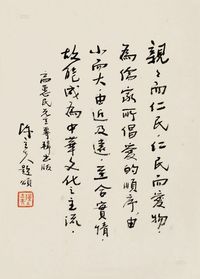 親々而仁民仁民而愛物，
為儒家所倡愛的順序，由
小而大，由近及遠，至合實情，
故能成為中華文化之主流
惠民先生專輯出版
陳立夫題頌